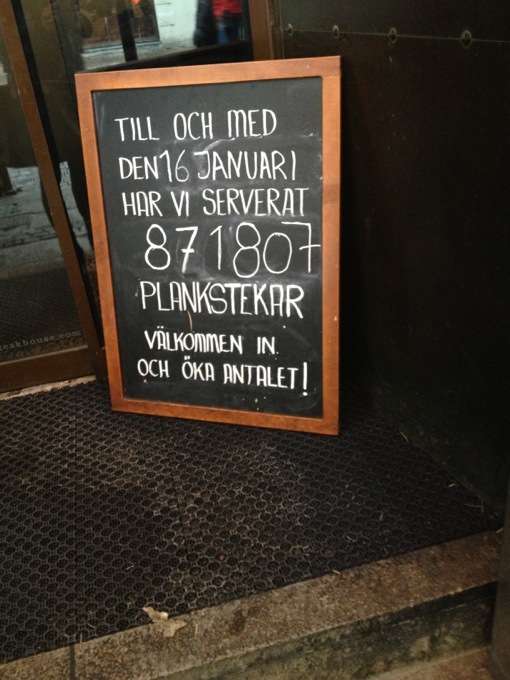 TILL OCH MED
DEN 16 JANUARI
HAR VI SERVERAT
871807
PLANKSTEKAR
VÄLKOMMEN IN
OCH ÖKA ANTALET!
eakhouse.com